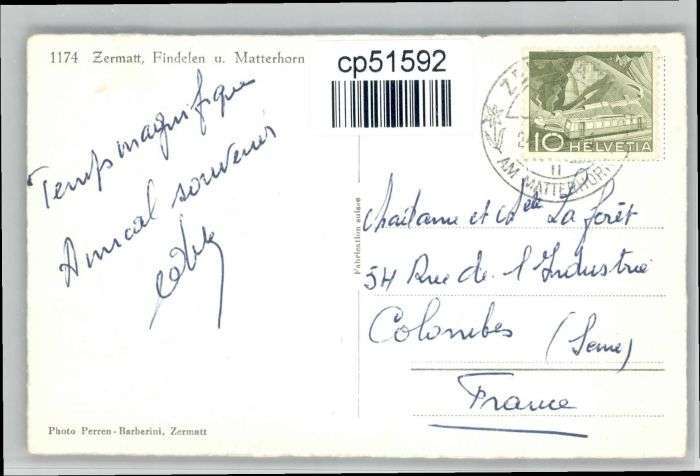 1174 Zermatt, Findelen u. Matterhorn
cp51592
10 HELVETIA
AM MATTERHORN
Temps magnifique
Amical souvenir
Fabrication suisse
et La Forêt
54 Rue de l'Industrie
Colombes (Seine)
France
Photo Perren-Barberini, Zermatt